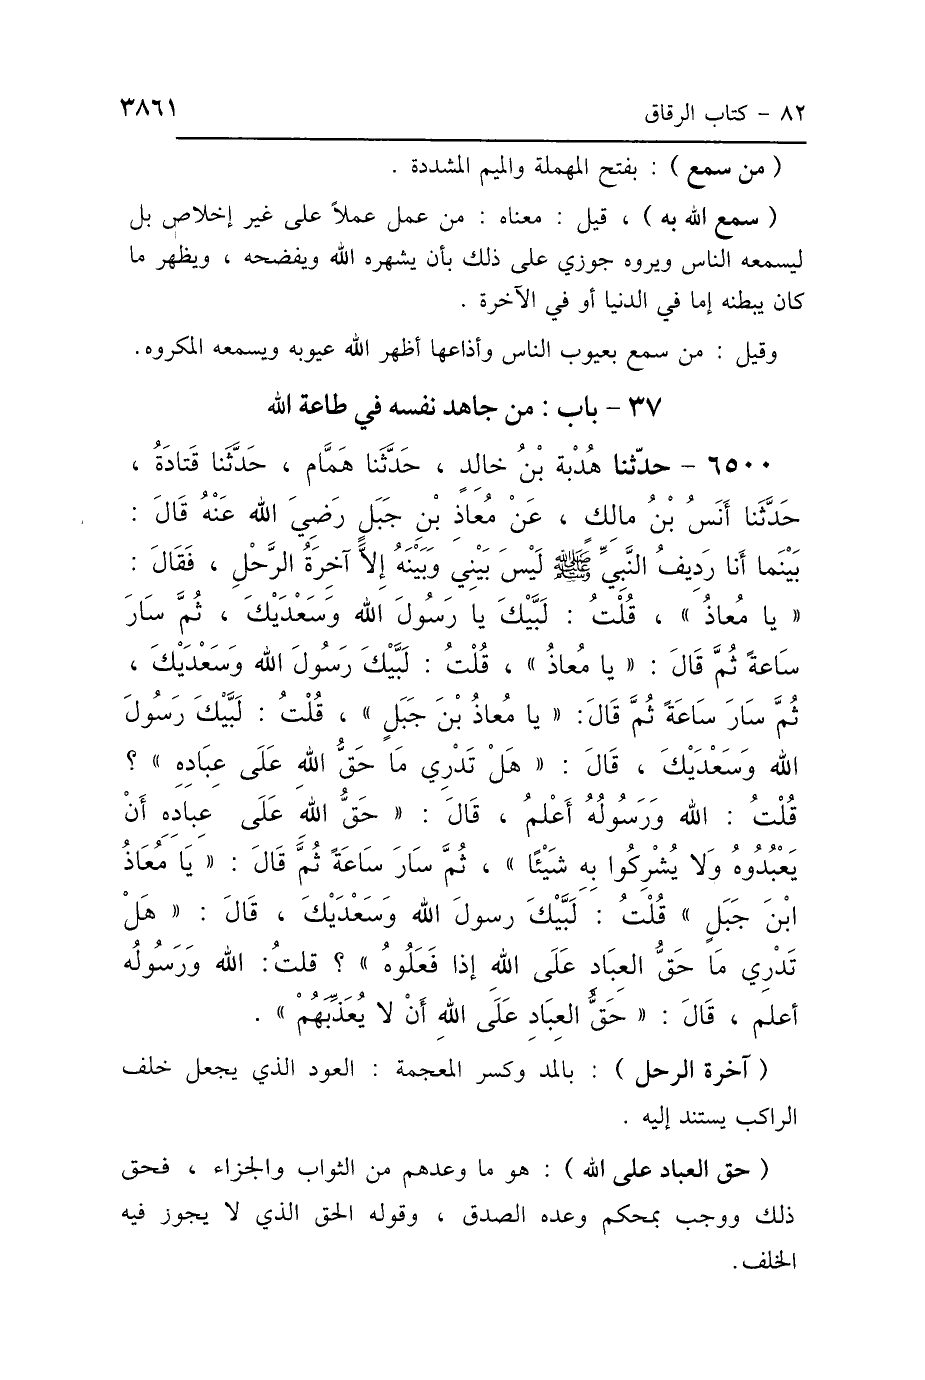 ٨٢ - كتاب الرقاق ٣٨٦١
( من سمع ) : بفتح المهملة والميم المشددة .
( سمع الله به ) ، قيل : معناه : من عمل عملاً على غير إخلاص بل
ليسمعه الناس ويروه جوزي على ذلك بأن يشهره الله ويفضحه ، ويظهر ما
كان يبطنه إما في الدنيا أو في الآخرة .
وقيل : من سمع بعيوب الناس وأذاعها أظهر الله عيوبه ويسمعه المكروه.
٣٧ - باب : من جاهد نفسه في طاعة الله
٦٥٠٠ - حدّثنا هُدْبة بْنُ خالدٍ ، حَدَّثَنا هَمَّام ، حَدَّثَنا قَتادَةُ ،
حَدَّثَنا أَنَسُ بْنُ مالكٍ ، عَنْ مُعَاذِ بنِ جَبَلٍ رضِيَ الله عَنْهُ قَالَ :
بَيْنَما أَنا رَدِيفُ النَّبِيِّ ﷺ لَيْسَ بَيْنِي وَبَيْنَهُ إِلاَّ آخرَةُ الرَّحْلِ ، فَقَالَ :
« يا مُعاذُ » ، قُلْتُ : لَبَّيْكَ يا رَسُولَ الله وَسَعْدَيْكَ ، ثُمَّ سَارَ
سَاعةً ثُمَّ قَالَ : « يا مُعاذُ » ، قُلْتُ : لَبَّيْكَ رَسُولَ الله وَسَعْدَيْكَ ،
ثُمَّ سَارَ سَاعَةً ثُمَّ قَالَ: « يا مُعاذُ بْنَ جَبَلٍ » ، قُلْتُ : لَبَّيْكَ رَسُولَ
الله وَسَعْدَيْكَ ، قَالَ : « هَلْ تَدْرِي مَا حَقُّ اللهِ عَلَى عِبَادِهِ » ؟
قُلْتُ : الله وَرَسُولُهُ أَعْلمُ ، قَالَ : « حَقُّ اللهِ عَلَى عِبادِهِ أَنْ
يَعْبُدُوهُ وَلا يُشْرِكُوا بِهِ شَيْئًا » ، ثُمَّ سَارَ سَاعَةً ثُمَّ قَالَ : « يَا مُعَاذُ
ابْنَ جَبَلٍ » قُلْتُ : لَبَّيْكَ رسولَ الله وَسَعْدَيْكَ ، قَالَ : « هَلْ
تَدْرِي مَا حَقُّ العِبَادِ عَلَى اللهِ إذا فَعَلُوهُ » ؟ قلتُ: الله وَرَسُولُه
أعلم ، قَالَ : « حَقُّ العِبَادِ عَلَى اللهِ أَنْ لا يُعَذِّبَهُمْ » .
( آخرة الرحل ) : بالمد وكسر المعجمة : العود الذي يجعل خلف
الراكب يستند إليه .
( حق العباد على الله ) : هو ما وعدهم من الثواب والجزاء ، فحق
ذلك ووجب بمحكم وعده الصدق ، وقوله الحق الذي لا يجوز فيه
الخلف.